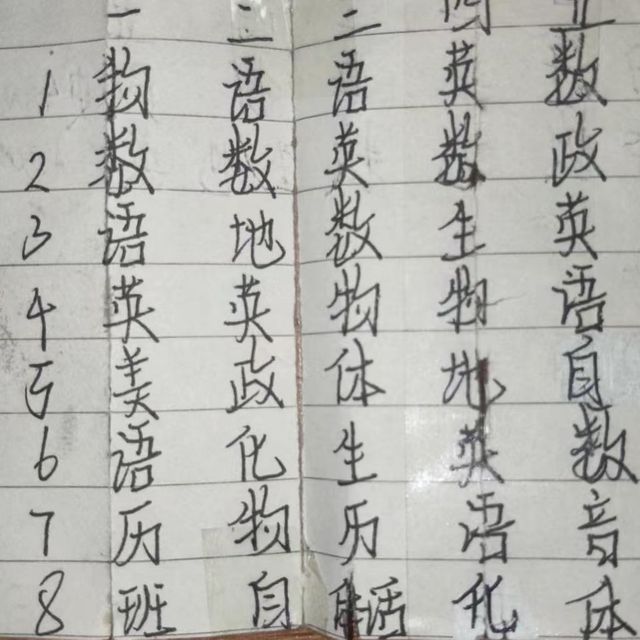 一 二 三 四 五
1 物 语 语 英 数
2 数 数 英 数 政
3 语 地 数 生 英
4 英 英 物 物 语
5 美 政 体 地 自
6 语 化 生 英 数
7 历 物 历 语 音
8 班 自 活 化 体